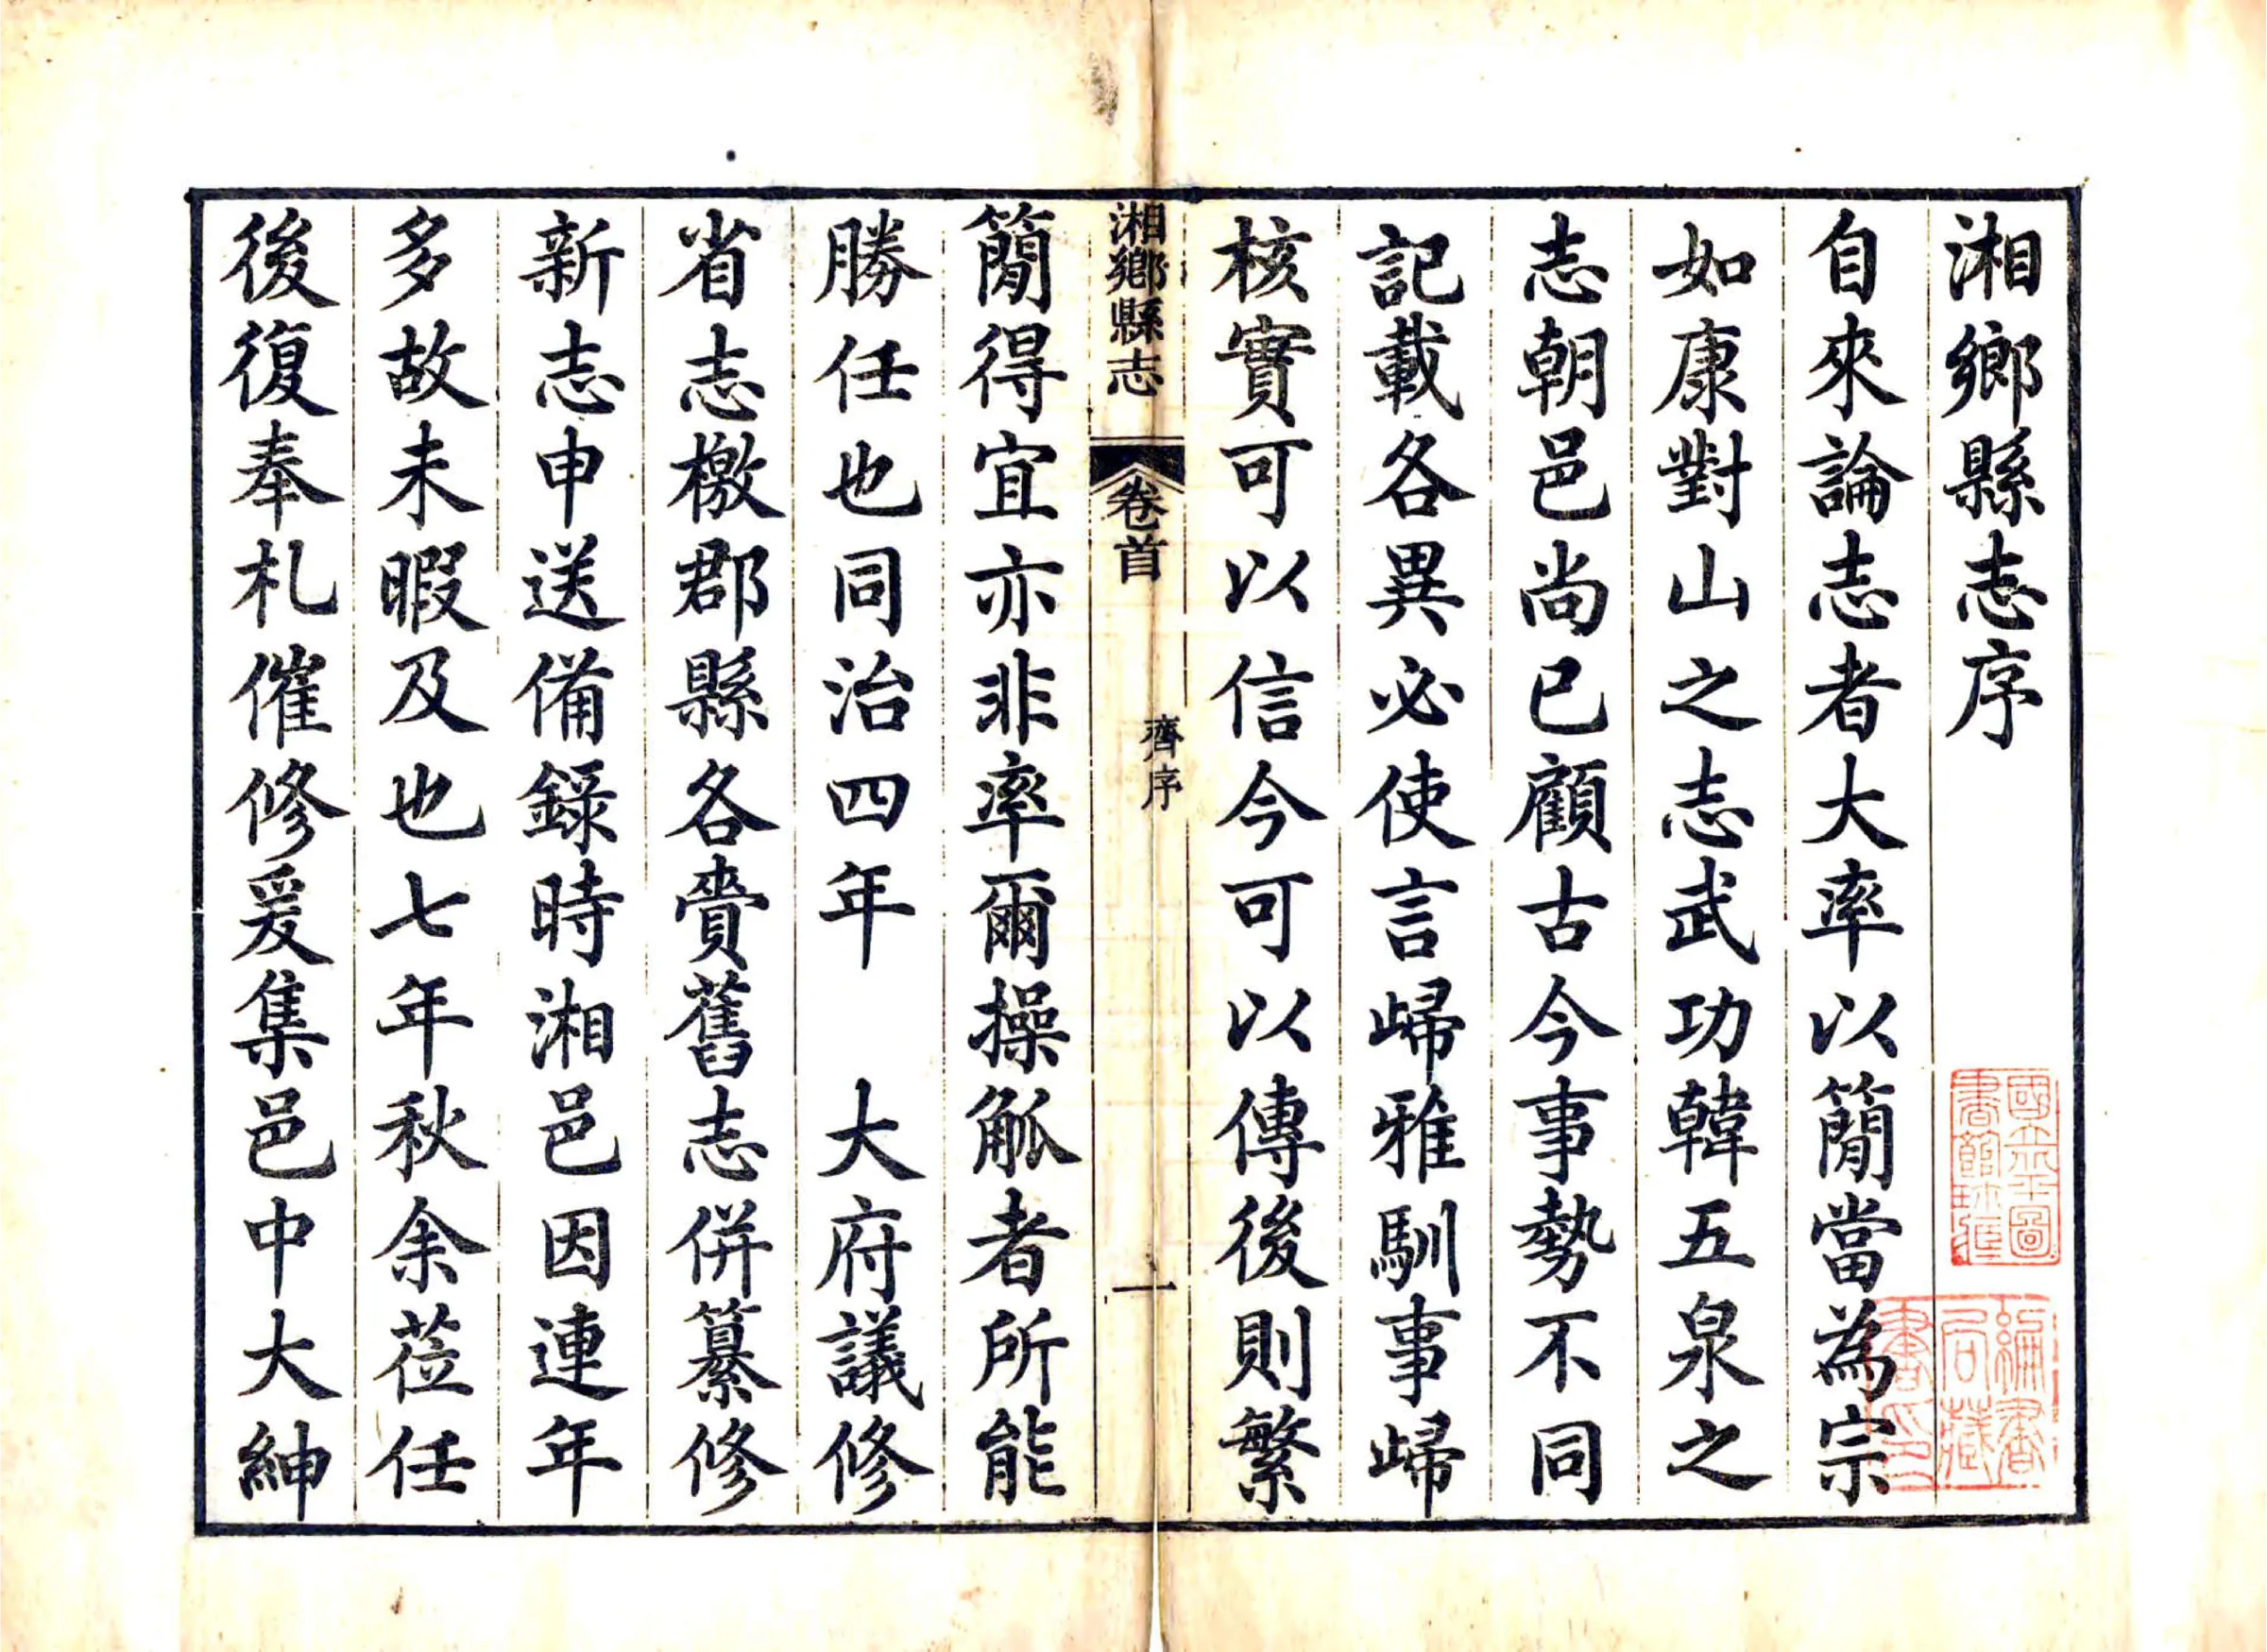 湘鄉縣志序
自來論志者大率以簡當為宗
如康對山之志武功韓五泉之
志朝邑尚已顧古今事勢不同
記載各異必使言歸雅馴事歸
核實可以信今可以傳後則繁
湘鄉縣志
卷首
齊序
一
簡得宜亦非率爾操觚者所能
勝任也同治四年　大府議修
省志檄郡縣各賫舊志併纂修
新志申送備錄時湘邑因連年
多故未暇及也七年秋余莅任
後復奉札催修爰集邑中大紳